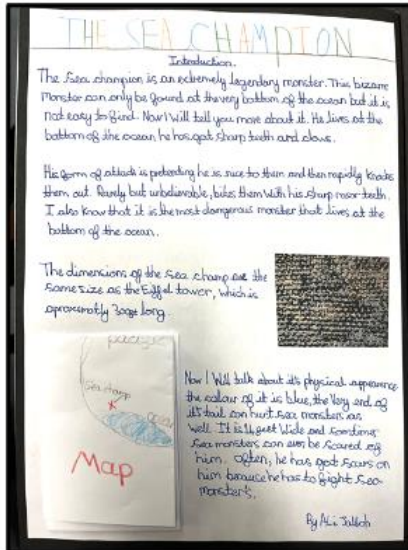 THE SEA CHAMPION
Introduction.
The Sea champion is an extremely legendary monster. This bizare
monster can only be found at the very bottom of the ocean but it is
not easy to find. Now I will tell you more about it. He lives at the
bottom of the ocean, he has got sharp teeth and claws.
His form of attack is pretending he is nice to them and then rapidly knocks
them out. Rarely but unbelievable, bites them with his sharp rasor teeth.
I also know that it is the most dangerous monster that lives at the
bottom of the ocean.
The dimensions of the sea champ are the
same size as the Eiffel tower, which is
aproximatly long.
pacific
sea champ
ocean
Map
Now I Will talk about it's physical appearance
the colour of it is blue, the Very end of
it's tail can hurt sea monsters as
well. It is feet Wide and somtimes
sea monsters can even be scared of
him. Often, he has got scars on
him because he has to fight sea
monster's.
By Ali